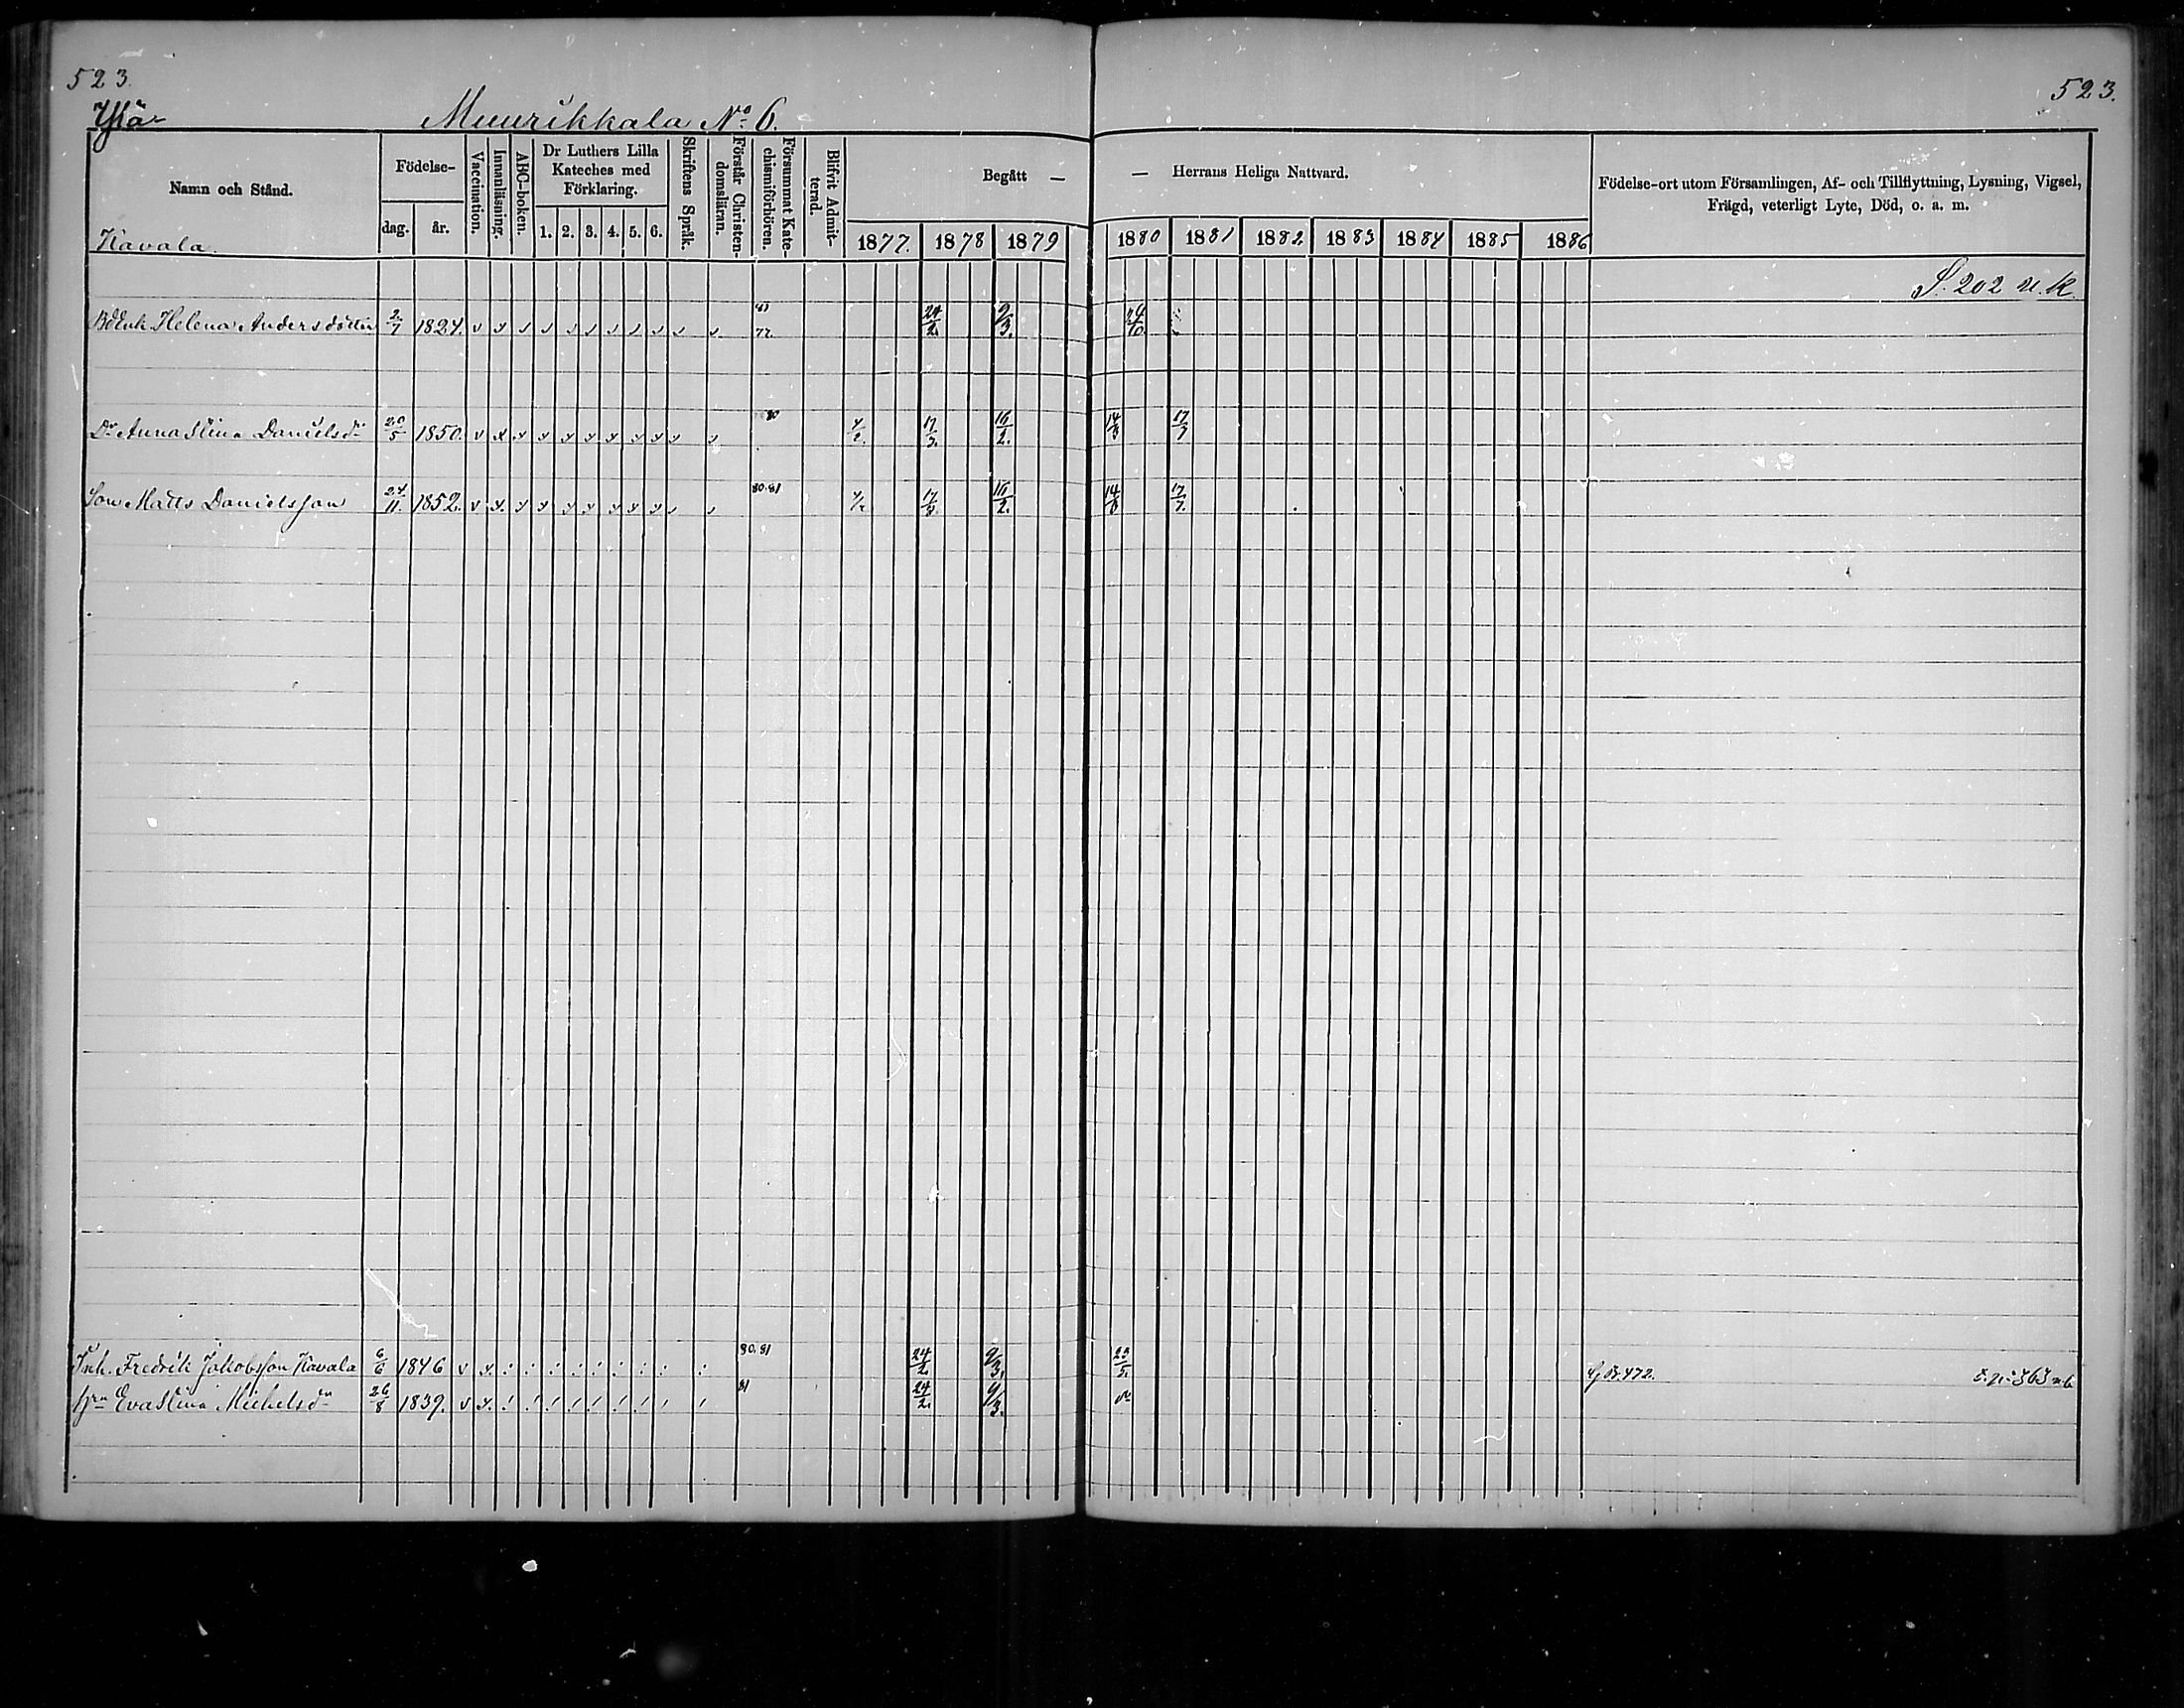 523. 523.
Ylä- Muurikkala No 6.
Namn och Stånd. Födelse- Vaccination. Innanläsning. ABC-boken. Dr Luthers Lilla Kateches med Förklaring. Skriftens Språk. Förstår Christen-domsläran. Försummat Kate-chismiförhören. Blifvit Admit-terad. Begått — — Herrans Heliga Nattvard. Födelse-ort utom Församlingen, Af- och Tillflyttning, Lysning, Vigsel, Frägd, veterligt Lyte, Död, o. a. m.
dag. år. 1. 2. 3. 4. 5. 6. 1877. 1878 1879 1880 1881 1882. 1883 1884 1885 1886
Kavala.
S. 202 u.k.
Enk. Helena Andersdotter 2/7 1824. 77. 24/2. 9/3. 24/10.
Dr Anna Stina Danielsdr 20/5 1850. 80 17/3. 16/2. 14/3 17/7
Son Matts Danielsson 24/11. 1852. 80.81 17/3. 16/2. 14/3 17/7.
Inh. Fredrik Jakobsson Kavala 6/6 1846 80.81 24/2. 9/3. 23/5. 472. 563
Hru Eva Stina Michelsdr 26/8 1839. 81 24/2. 9/3.